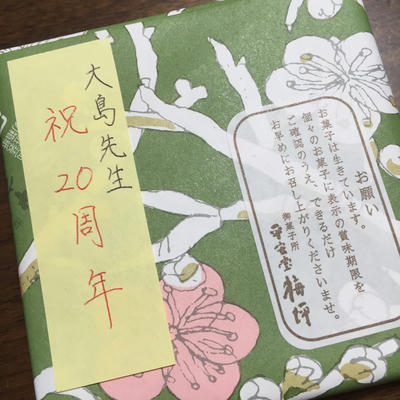 大島先生
祝20周年
お願い
お菓子は生きています。
個々のお菓子に表示の賞味期限を
ご確認のうえ、できるだけ
お早めにお召し上がりくださいませ。
御菓子所
平安堂梅坪